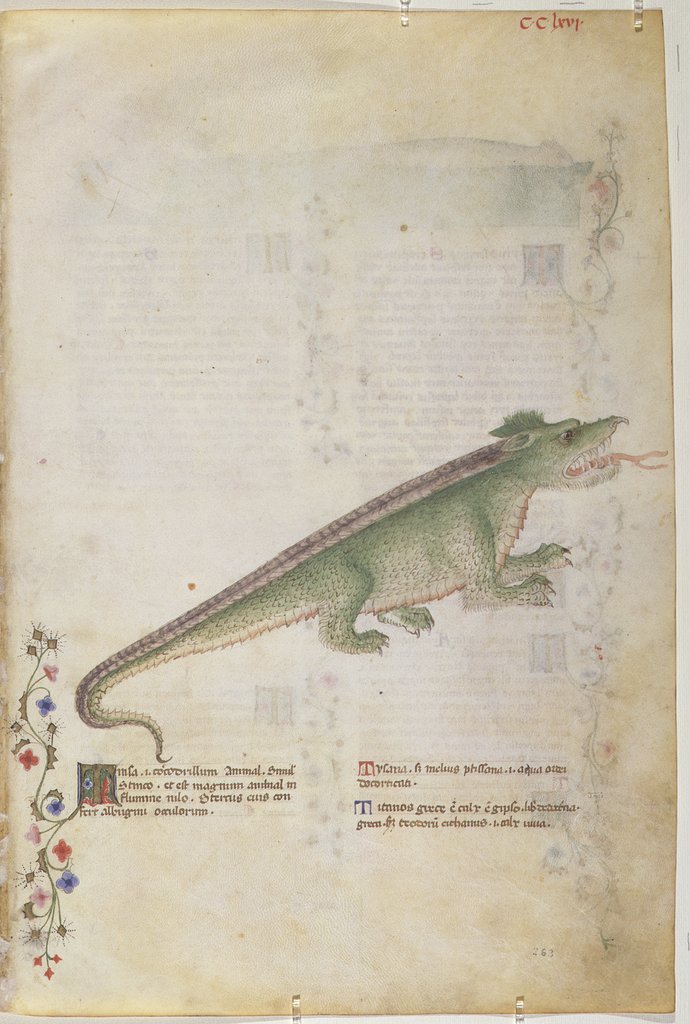 C·C·lxvi·
Tinsa .i. cocodrillum Animal. Simil
Stinco · et est magnum animal in
flumine nilo. Stercus eius con
fert albugini oculorum ·
Tysaria. s melius ptissana .i. aqua ordei
decorticati ·
Titanos grece ē calx ē gipso.
greca. teodorū .i. calx uiua.
263